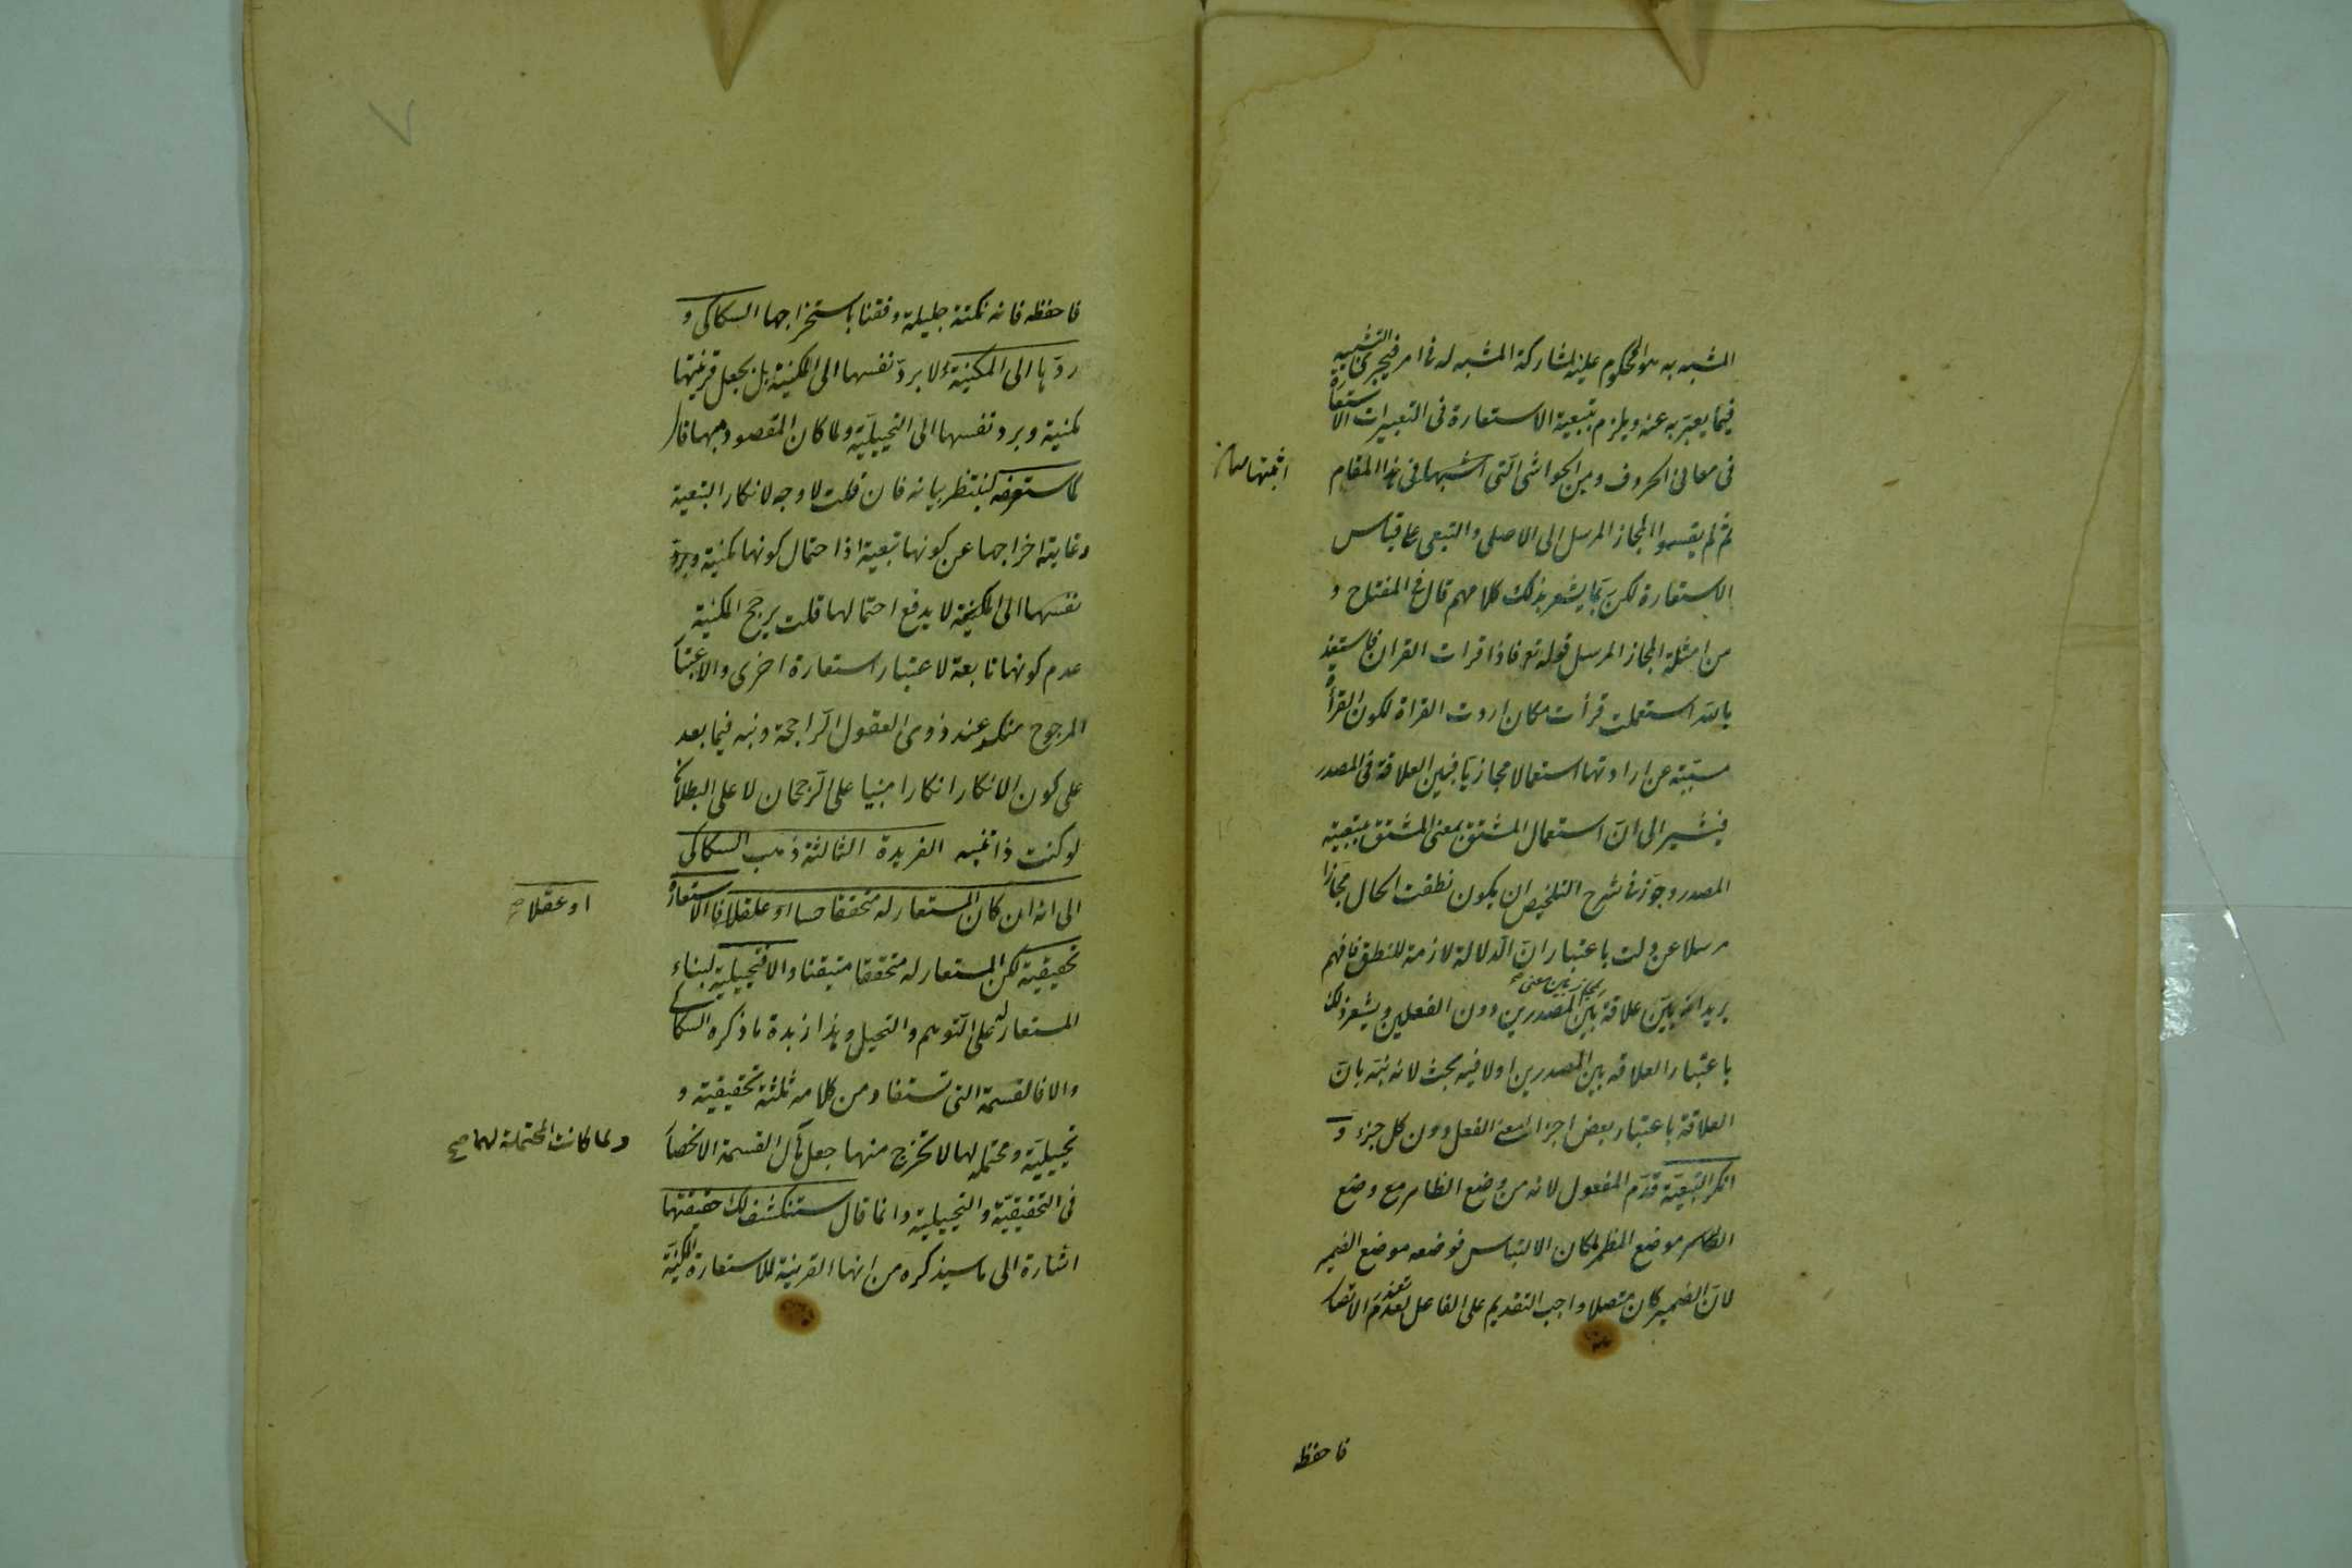 المشبه به هو المحكوم عليه بمشاركة المشبه له فى امر فيجرى التشبيه
فيما يعتبر به عنه ويلزم بتبعية الاستعارة فى التعبيرات الاستعارة
فى معانى الحروف ومن الحواشى التى اشبهها فى هذا المقام
اثبتها
ثم لم يقسموا المجاز المرسل الى الاصلى والتبعى على قياس
الاستعارة لكن ربما يشعر بذلك كلامهم قال فى المفتاح و
من امثلة المجاز المرسل قوله تع فاذا قرات القران فاستعذ
بالله استعملت قرأت مكان اردت القراة لكون القرأة
مسببة عن ارادتها استعمالا مجازيا فبين العلاقة فى المصدر
فيشير الى ان استعمال المشتق بمعنى المشتق بتبعية
المصدر وجوز فى شرح التلخيص ان يكون نطقت الحال مجازا
مرسلا عن دلت باعتبار ان الدلالة لازمة للنطق فافهم
يريد انه بين علاقة بين المصدرين دون الفعلين ويشعر ذلك
باعتبار العلاقة بين المصدرين اولا فيه بحث لانه نبه بان
العلاقة باعتبار بعض اجزاء معنى الفعل دون كل جزء و
انكر التبعية قدم المفعول لانه من وضع الظاهر مع وضع
الظاهر موضع المظهر لمكان الالتباس فوضعه موضع الضمير
لان الضمير كان متصلا واجب التقديم على الفاعل لتعذر الاتصا
فاحفظه
فاحفظه فانه نكتة جليلة وفقنا باستخراجها السكاكى و
ردها الى المكنية لا برد نفسها الى المكنية بل بجعل قرينتها
مكنية وبرد نفسها الى التخييلية ولما كان المقصود مبهما قال
كما ستعرفه لينتظر بيانه فان قلت لا وجه لانكار التبعية
وغايته اخراجها عن كونها تبعية اذ احتمال كونها مكنية وبرد
نفسها الى المكنية لا يدفع احتمالها قلت يرجح المكنية
عدم كونها تابعة لاعتبار استعارة اخرى والاعتبا
المرجوح منكر عند ذوى العقول الراجحة ونبه فيما بعد
على كون الانكار انكارا مبنيا على الرجحان لا على البطلان
لو كنت ذا تنبه الفريدة الثالثة ذهب السكاكى
الى انه ان كان المستعار له متحققا حسا او عقلا فالاستعارة
او عقلا صح
تحقيقية لكن المستعار له متحققا متيقنا والا فتخييلية لبناء
المستعار له على التوهم والتخيل وهذا زبدة ما ذكره السكاكى
والا فالقسمة التى تستفاد من كلامه ثلثة تحقيقية و
تخييلية ومحتملة لهما لا تخرج منهما جعل مآل القسمة الانحصا
ولما كانت المحتملة لهما صح
فى التحقيقية والتخييلية وانما قال ستنكشف لك حقيقتها
اشارة الى ما سيذكره من انها القرينة للاستعارة المكنية